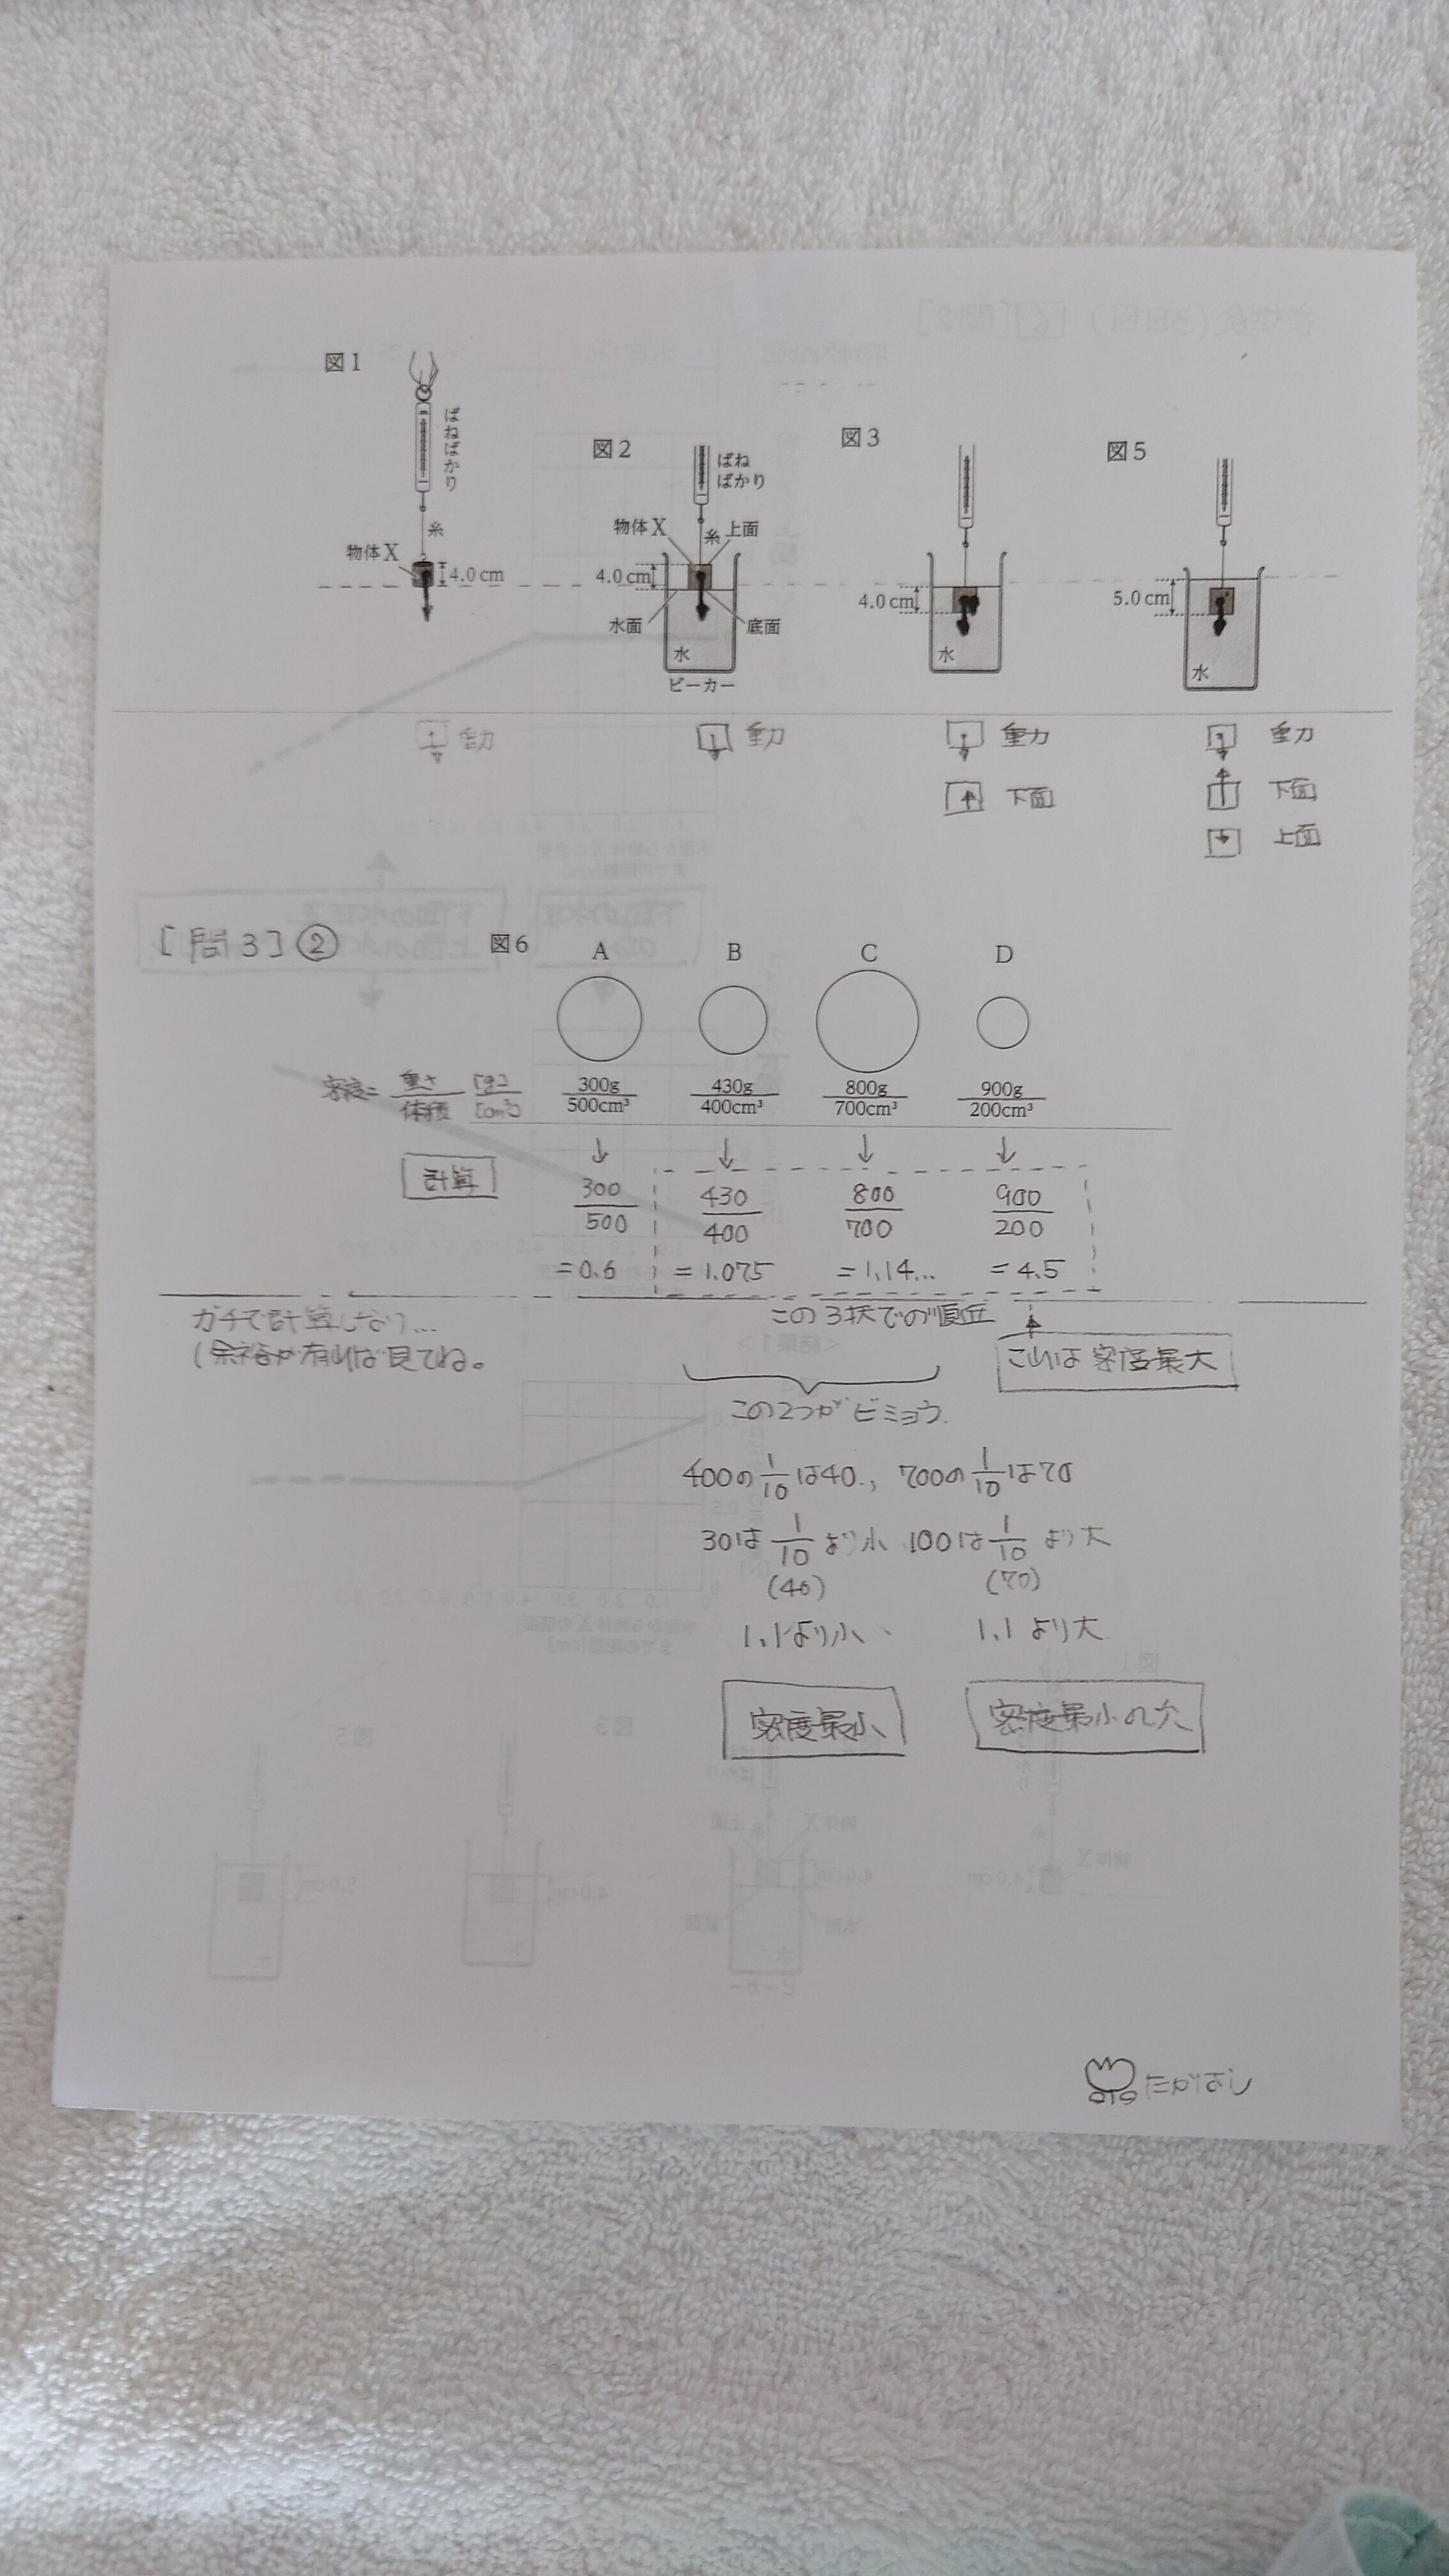 図1
ばねばかり
糸
物体X
4.0cm
図2
ばね
ばかり
物体X
糸
上面
4.0cm
水面
底面
水
ビーカー
図3
4.0cm
水
図5
5.0cm
水
重力
重力
重力
重力
下面
下面
上面
[問3]②
図6
A B C D
密度= 重さ/体積 [g]/[cm³]
300g/500cm³ 430g/400cm³ 800g/700cm³ 900g/200cm³
↓ ↓ ↓ ↓
計算
300/500 430/400 800/700 900/200
=0.6 =1.075 =1.14... =4.5
ガチで計算しない...
(余裕が有れば見てね。
この3択での順位
これは密度最大
この2つがビミョウ.
400の1/10は40., 700の1/10は70
30は1/10より小 100は1/10より大
(40) (70)
1.1より小、 1.1より大
密度最小 密度最小の次
たかはし